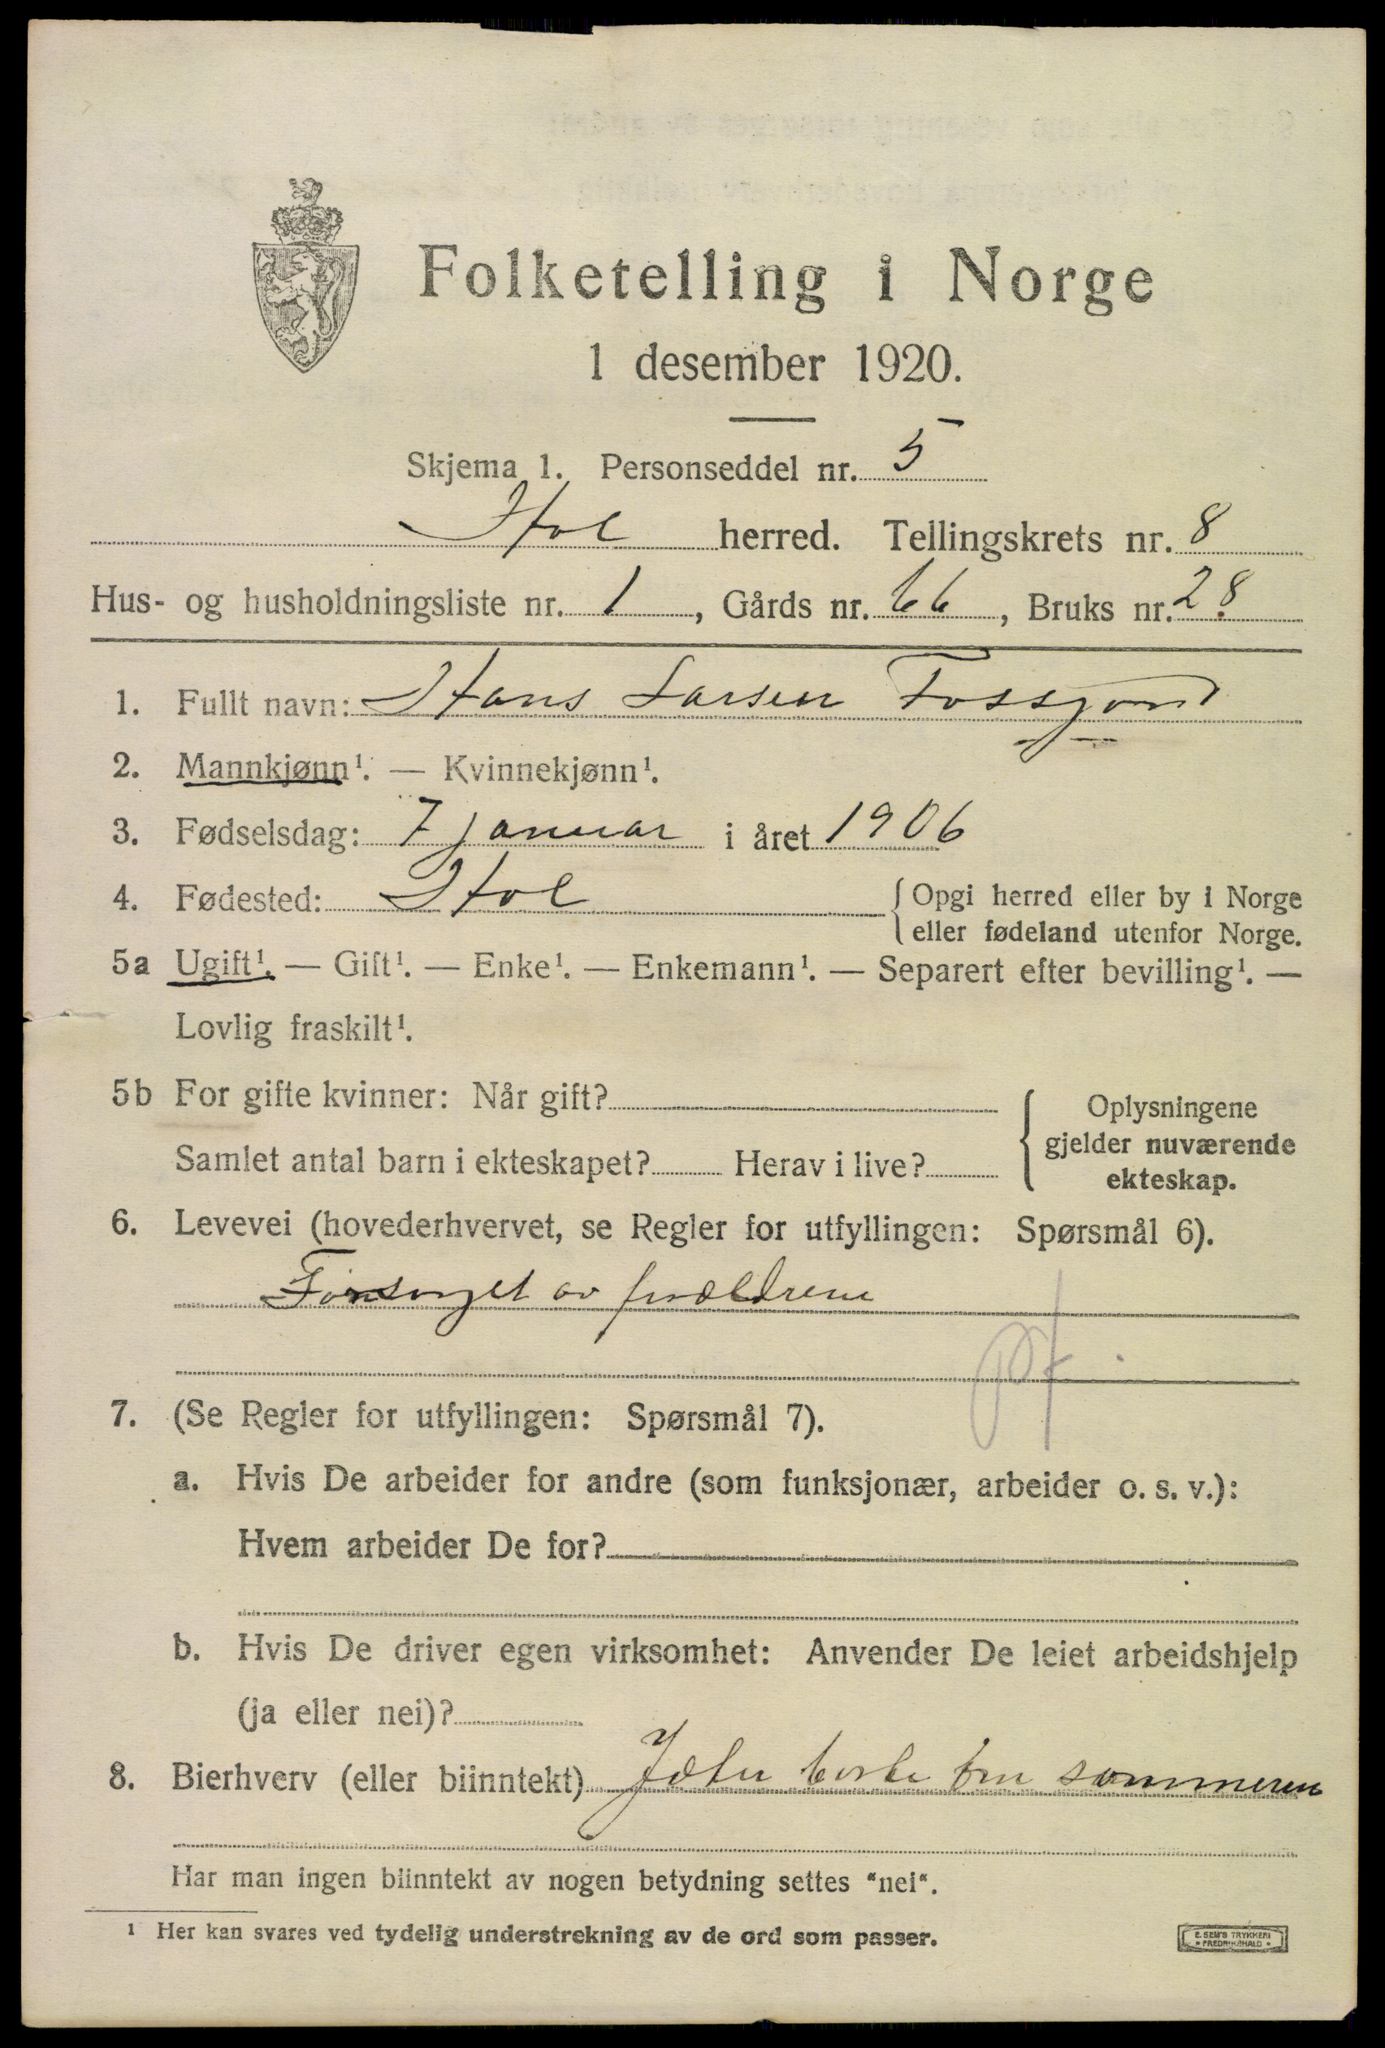 Folketelling i Norge
1 desember 1920.
Skjema 1. Personseddel nr. 5
Hol herred. Tellingskrets nr. 8
Hus- og husholdningsliste nr. 1, Gårds nr. 66, Bruks nr. 28
1. Fullt navn: Hans Larsen Fossgård
2. Mannkjønn¹. — Kvinnekjønn¹.
3. Fødselsdag: 7 januar i året 1906
4. Fødested: Hol {Opgi herred eller by i Norge
eller fødeland utenfor Norge.
5a Ugift¹. — Gift¹. — Enke¹. — Enkemann¹. — Separert efter bevilling¹. —
Lovlig fraskilt¹.
5b For gifte kvinner: Når gift?
Samlet antal barn i ekteskapet? Herav i live?
{Oplysningene
gjelder nuværende
ekteskap.
6. Levevei (hovederhvervet, se Regler for utfyllingen: Spørsmål 6).
Forsørget av forældrene
7. (Se Regler for utfyllingen: Spørsmål 7).
a. Hvis De arbeider for andre (som funksjonær, arbeider o. s. v.):
Hvem arbeider De for?
b. Hvis De driver egen virksomhet: Anvender De leiet arbeidshjelp
(ja eller nei)?
8. Bierhverv (eller biinntekt) Jæter borte om sommeren
Har man ingen biinntekt av nogen betydning settes "nei".
¹ Her kan svares ved tydelig understrekning av de ord som passer.
E. SEM'S TRYKKERI
FREDRIKSHALD